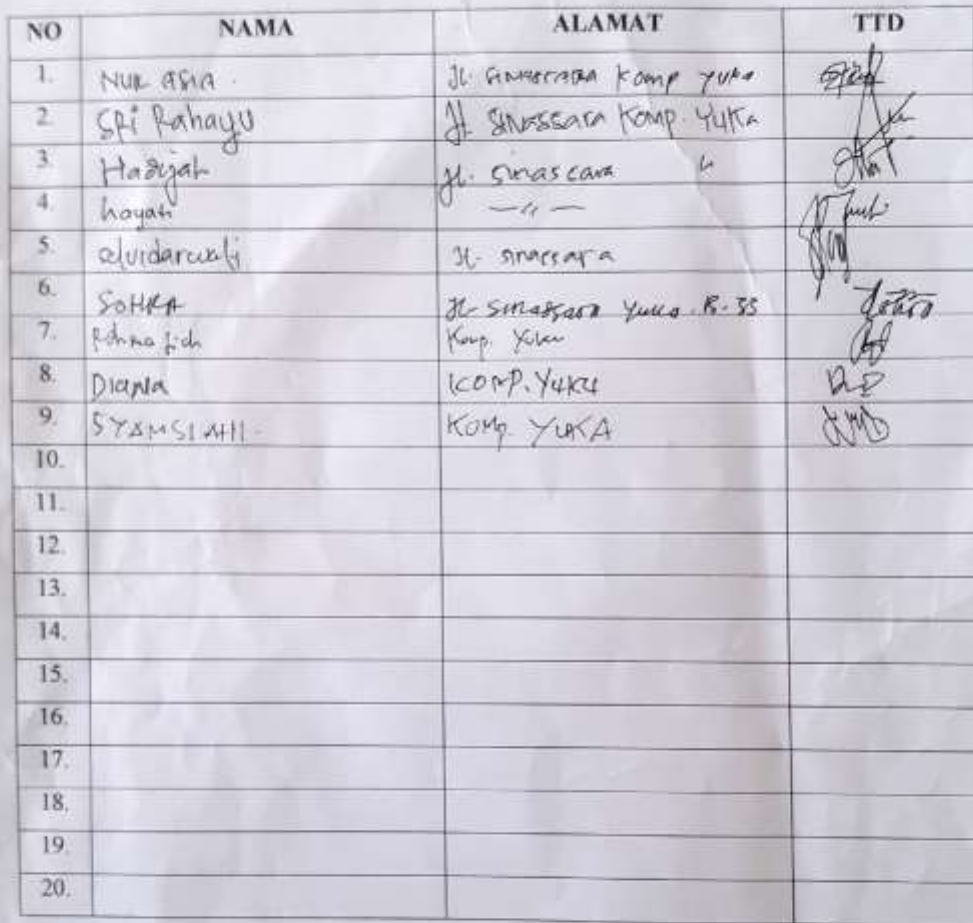 NO NAMA ALAMAT TTD
1. NUR ASIA. Jl. Komp YUKA
2. SRi Rahayu Jl. Sinassara Komp. YUKa
3. Hadijah Jl. Sinascara "
4. hayati —"—
5. Jl. sinassara
6. SOHRA Jl. Sinassara Yuka. B-35
7. Komp. Yuka
8. DIANA KOMP. YUKA
9. SYAMSIAH. KOMp. YUKA
10.
11.
12.
13.
14.
15.
16.
17.
18.
19.
20.